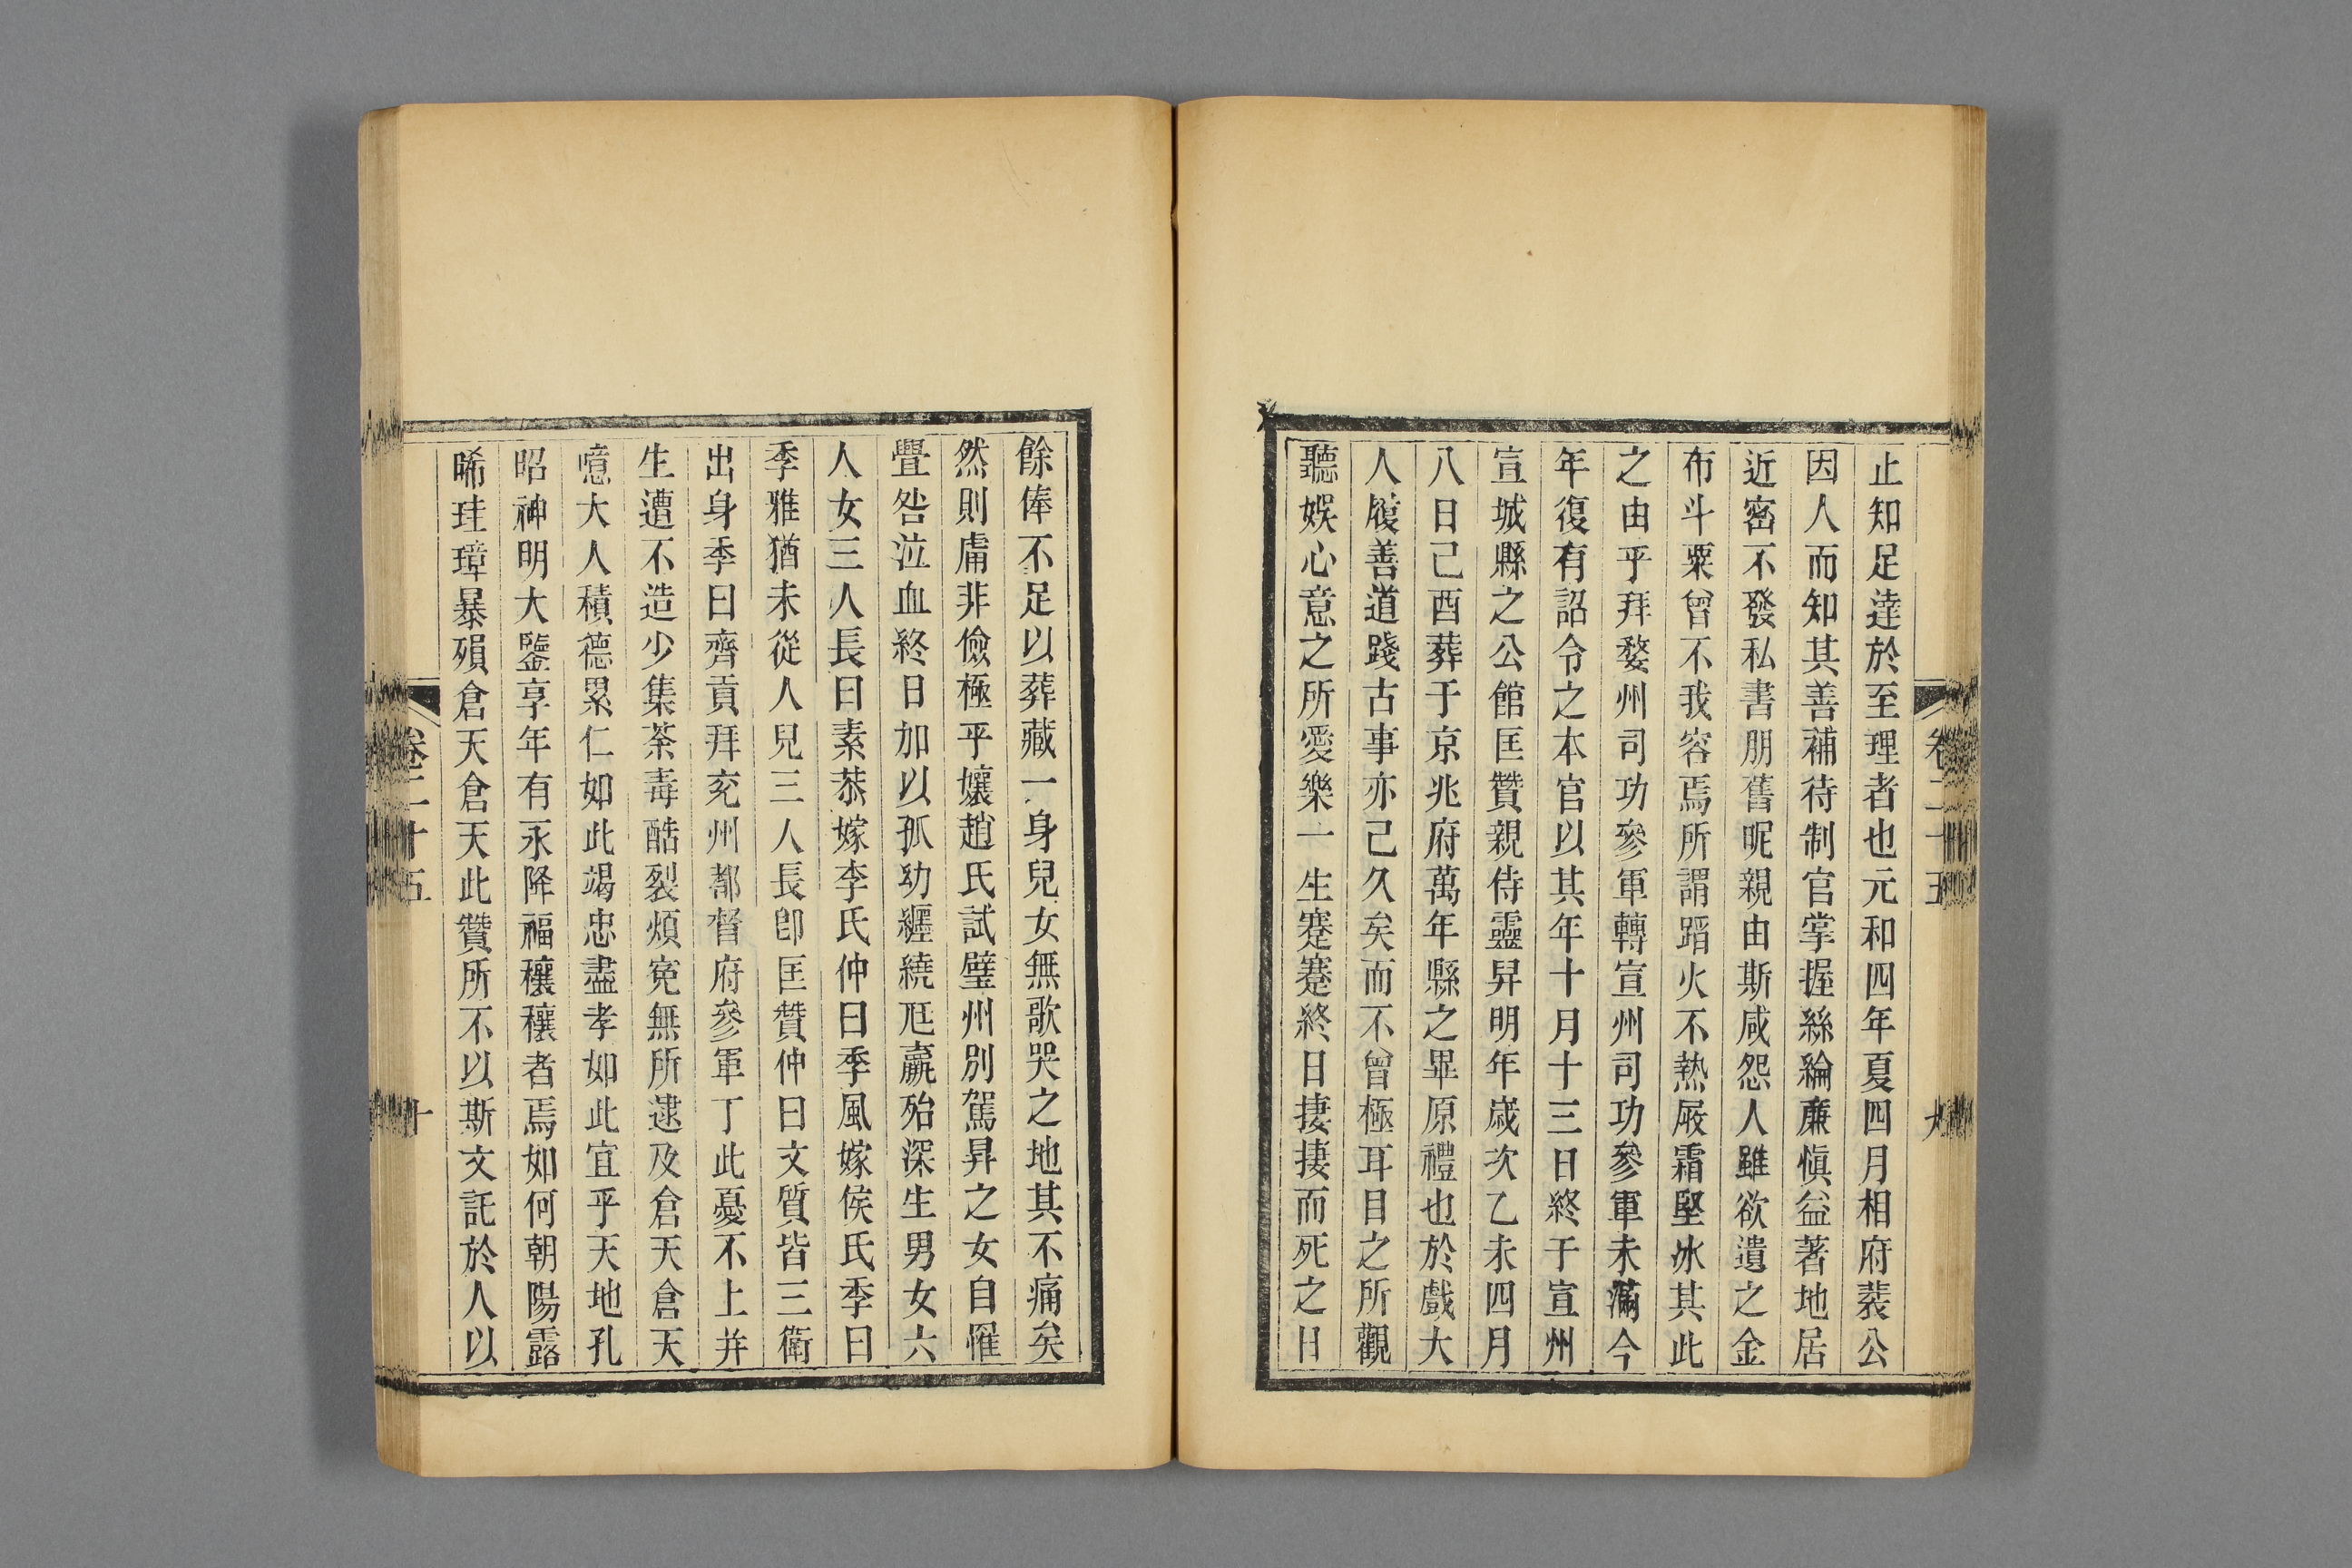 止知足逹於至理者也元和四年夏四月相府裴公
因人而知其善補待制官掌握絲綸廉愼益著地居
近密不發私書朋舊昵親由斯咸怨人雖欲遺之金
布斗粟曾不我容焉所謂蹈火不熱嚴霜堅冰其此
之由乎拜婺州司功參軍轉宣州司功參軍未滿今
年復有詔令之本官以其年十月十三日終于宣州
宣城縣之公館匡贊親侍靈舁明年歲次乙未四月
八日己酉葬于京兆府萬年縣之畢原禮也於戲大
人履善道踐古事亦已久矣而不曾極耳目之所觀
聽娛心意之所愛樂一生蹇蹇終日捿捿而死之日
餘俸不足以葬藏一身兒女無歌哭之地其不痛矣
然則庸非儉極乎孃趙氏試璧州別駕昇之女自罹
疊咎泣血終日加以孤幼纏繞尫羸殆深生男女六
人女三人長曰素恭嫁李氏仲曰季風嫁侯氏季曰
季雅猶未從人兒三人長卽匡贊仲曰文質皆三衛
出身季曰齊貢拜兖州都督府參軍丁此憂不上并
生遭不造少集荼毒酷裂煩寃無所逮及倉天倉天
噫大人積德累仁如此竭忠盡孝如此宜乎天地孔
昭神明大鑒享年有永降福穰穰者焉如何朝陽露
晞珪璋暴殞倉天倉天此贊所不以斯文託於人以
卷二十五
九
卷二十五
十